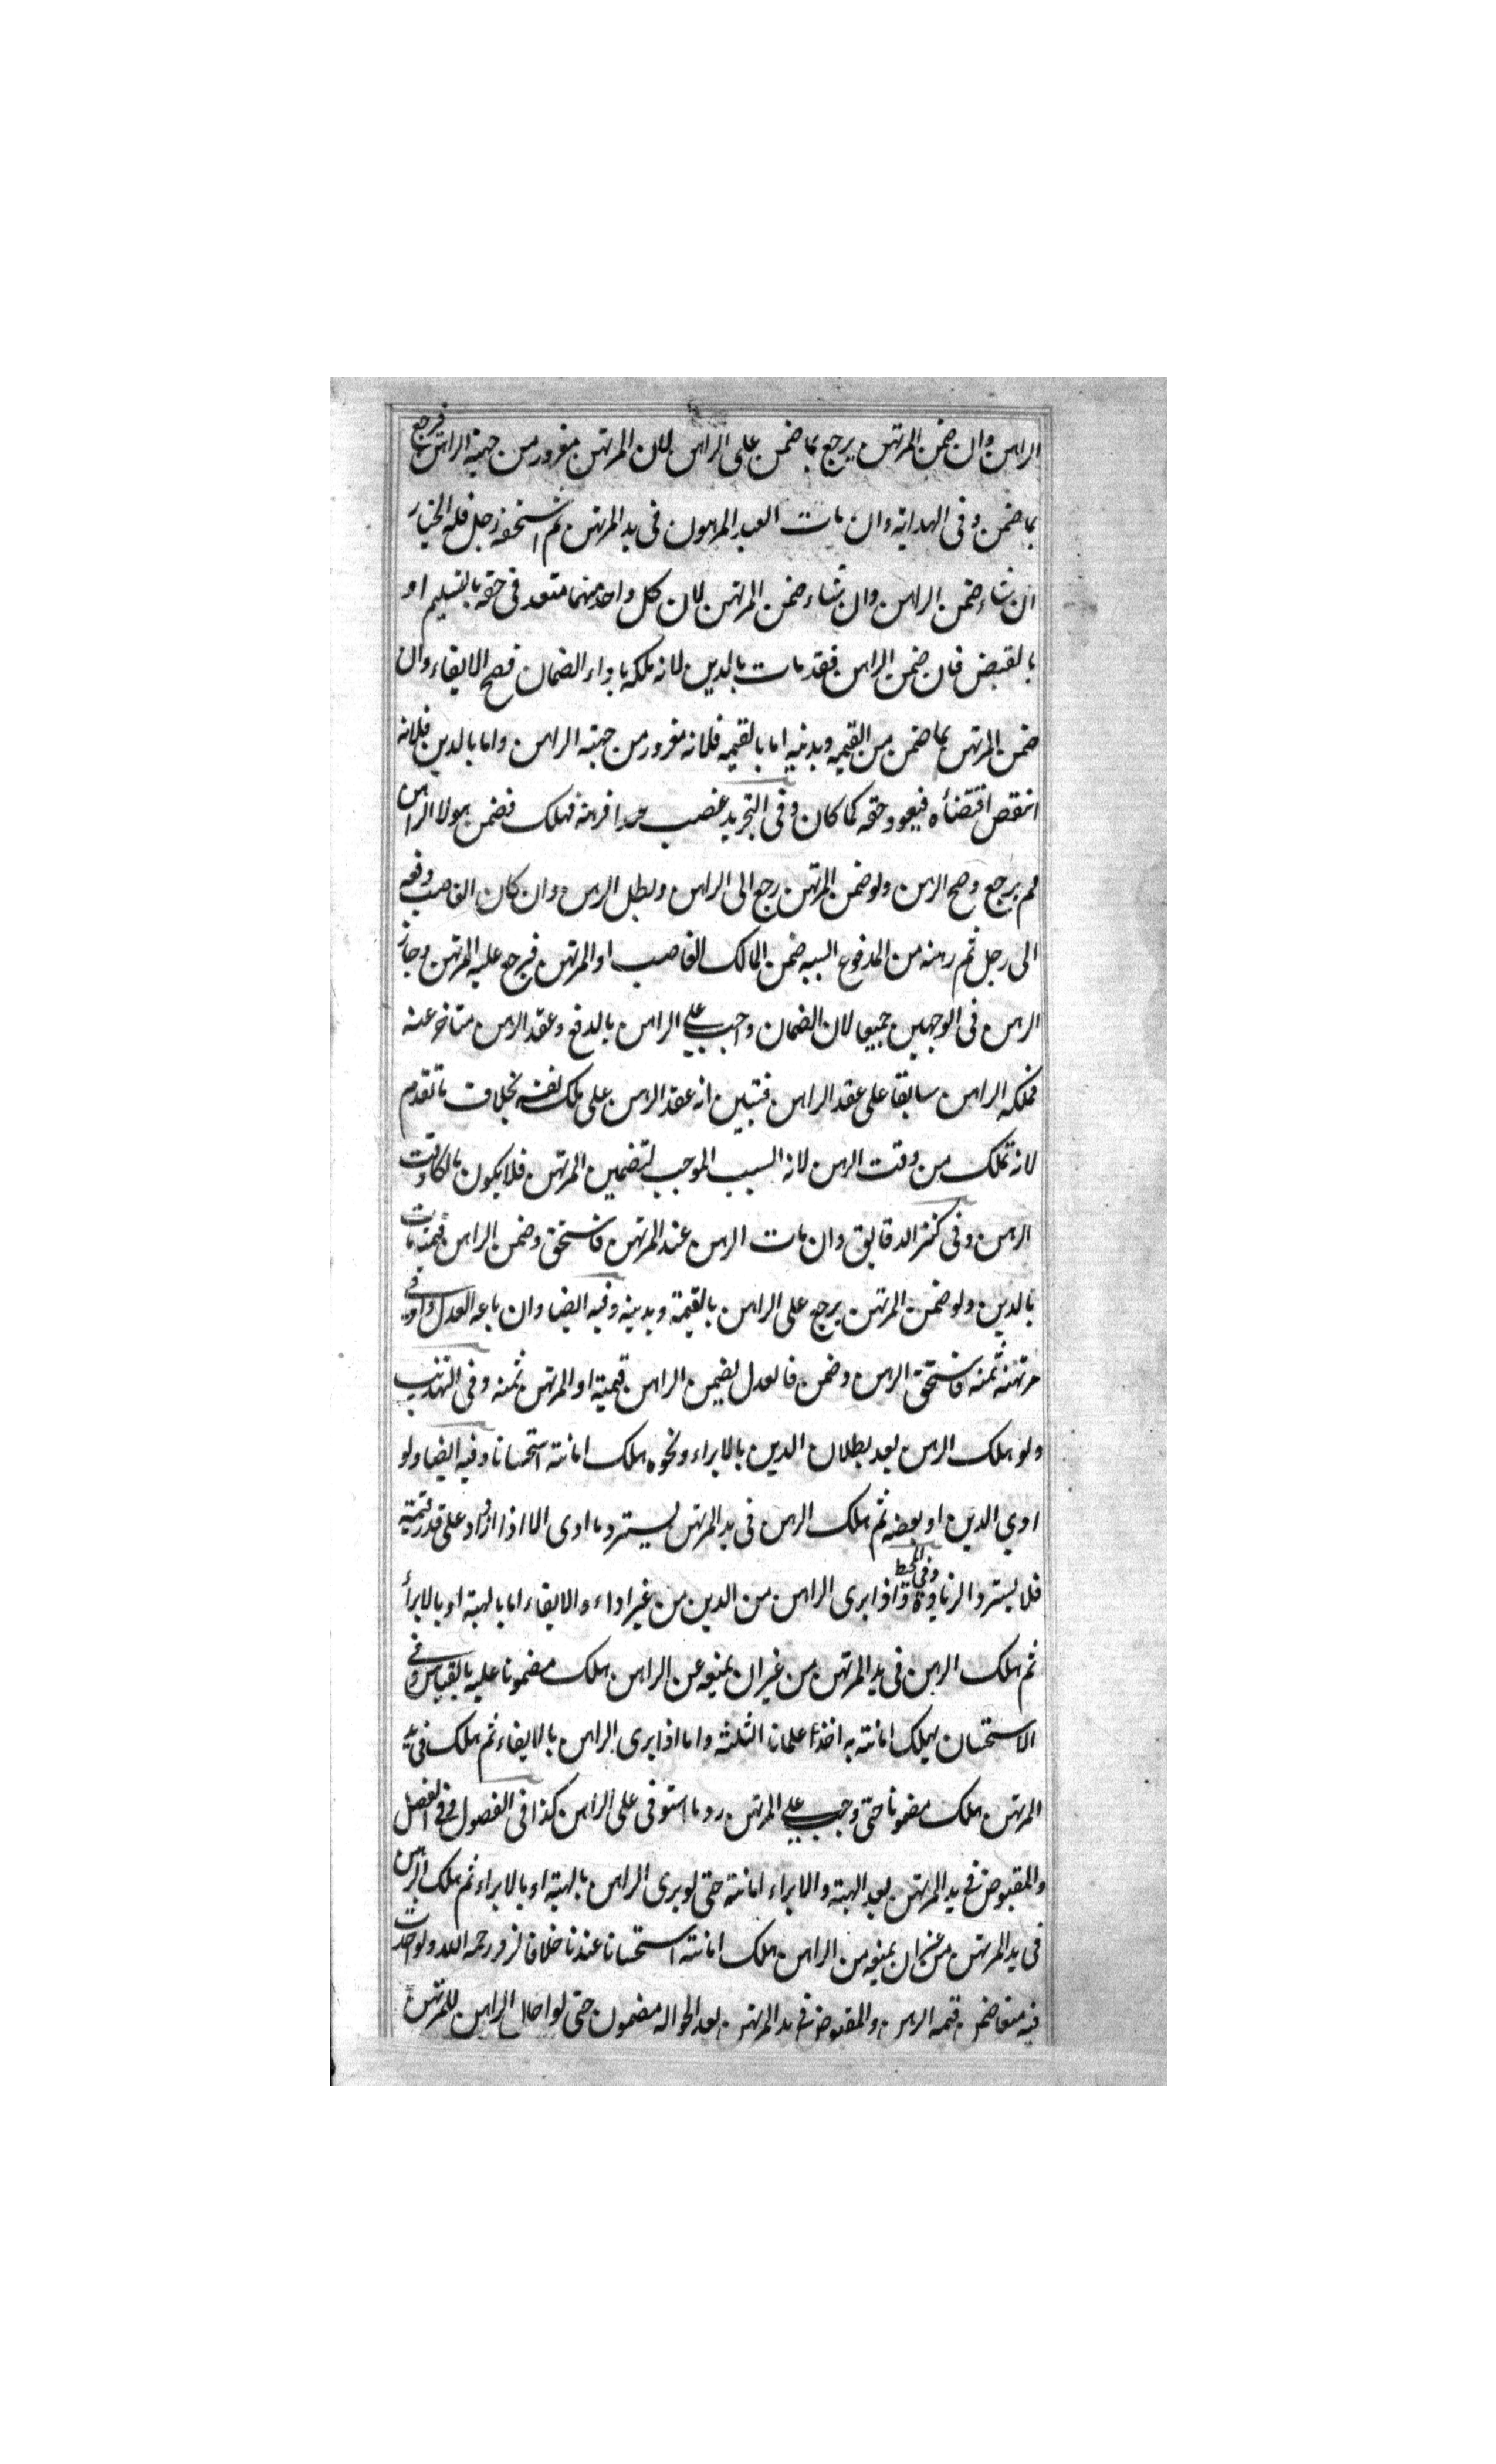 الراهن وان ضمن المرتهن يرجع بما ضمن على الراهن لان المرتهن مغرور من جهة الراهن فرجع
بما ضمن وفى الهداية وان مات العبد المرهون فى يد المرتهن ثم استحقه رجل فله الخيار
ان شاء ضمن الراهن وان شاء ضمن المرتهن لان كل واحد منهما متعد فى حقه بالتسليم او
بالقبض فان ضمن الراهن فقد مات بالدين لانه ملكه باداء الضمان فصح الايفاء وان
ضمن المرتهن بما ضمن من القيمه وبدينه اما بالقيمه فلانه مغرور من جهته الراهن واما بالدين فلانه
انتقض اقتضاه فيعود حقه كما كان وفى التجريد غصب عبدا فرهنه فهلك فضمن مولا الراهن
لم يرجع وصح الرهن ولو ضمن المرتهن رجع الى الراهن وبطل الرهن وان كان الغاصب دفعه
الى رجل ثم رهنه من المدفوع اليه ضمن المالك الغاصب او المرتهن فيرجع عليه المرتهن وجاز
الرهن فى الوجهين جميعا لان الضمان واجب على الراهن بالدفع وعقد الرهن متاخر عنه
فملكه الراهن سابقا على عقد الراهن فتبين انه عقد الرهن على ملك نفسه بخلاف ما تقدم
لانه تملك من وقت الرهن لانه السبب الموجب لتضمين المرتهن فلا يكون مالكا وقت
الرهن وفى كنز الدقايق وان مات الرهن عند المرتهن فاستحق وضمن الراهن قيمته مات
بالدين ولو ضمن المرتهن يرجع على الراهن بالقيمة وبدينه وفيه ايضا وان باعه العدل واوفى
مرتهنه ثمنه فاستحق الرهن وضمن فالعدل يضمن الراهن قيمته او المرتهن ثمنه وفى التهذيب
ولو هلك الرهن بعد بطلان الدين بالابراء ونحوه هلك امانته استحسانا وفيه ايضا ولو
ادي الدين او بعضه ثم هلك الرهن فى يد المرتهن يسترد ما ادى الا اذا ازداد على قدر قيمته
فلا يسترد الزيادة وفى المحيط واذا ابرى الراهن من الدين من غير اداء والايفاء اما بالهبته او بالابرأ
ثم هلك الرهن فى يد المرتهن من غير ان يمنعه عن الراهن هلك مضمونا عليه بالقياس وفى
الاستحسان يهلك امانته به اخذ علمانا الثلثه واما اذا ابرى الراهن بالايفاء ثم هلك فى يد
المرتهن هلك مضمونا حتى وجب على المرتهن رد ما استوفى على الراهن كذا فى الفصول وفى الفصل
والمقبوض فى يد المرتهن بعد الهبته والابراء امانته حتى لو برى الراهن بالهبته او بالابراء ثم هلك الرهن
فى يد المرتهن من غير ان يمنعه من الراهن هلك امانته استحسانا عندنا خلافا لزفر رحمه الله ولو احدث
فيه منعا ضمن قيمه الرهن والمقبوض فى يد المرتهن بعد الحواله مضمون حتى لو احال الراهن للمرتهن